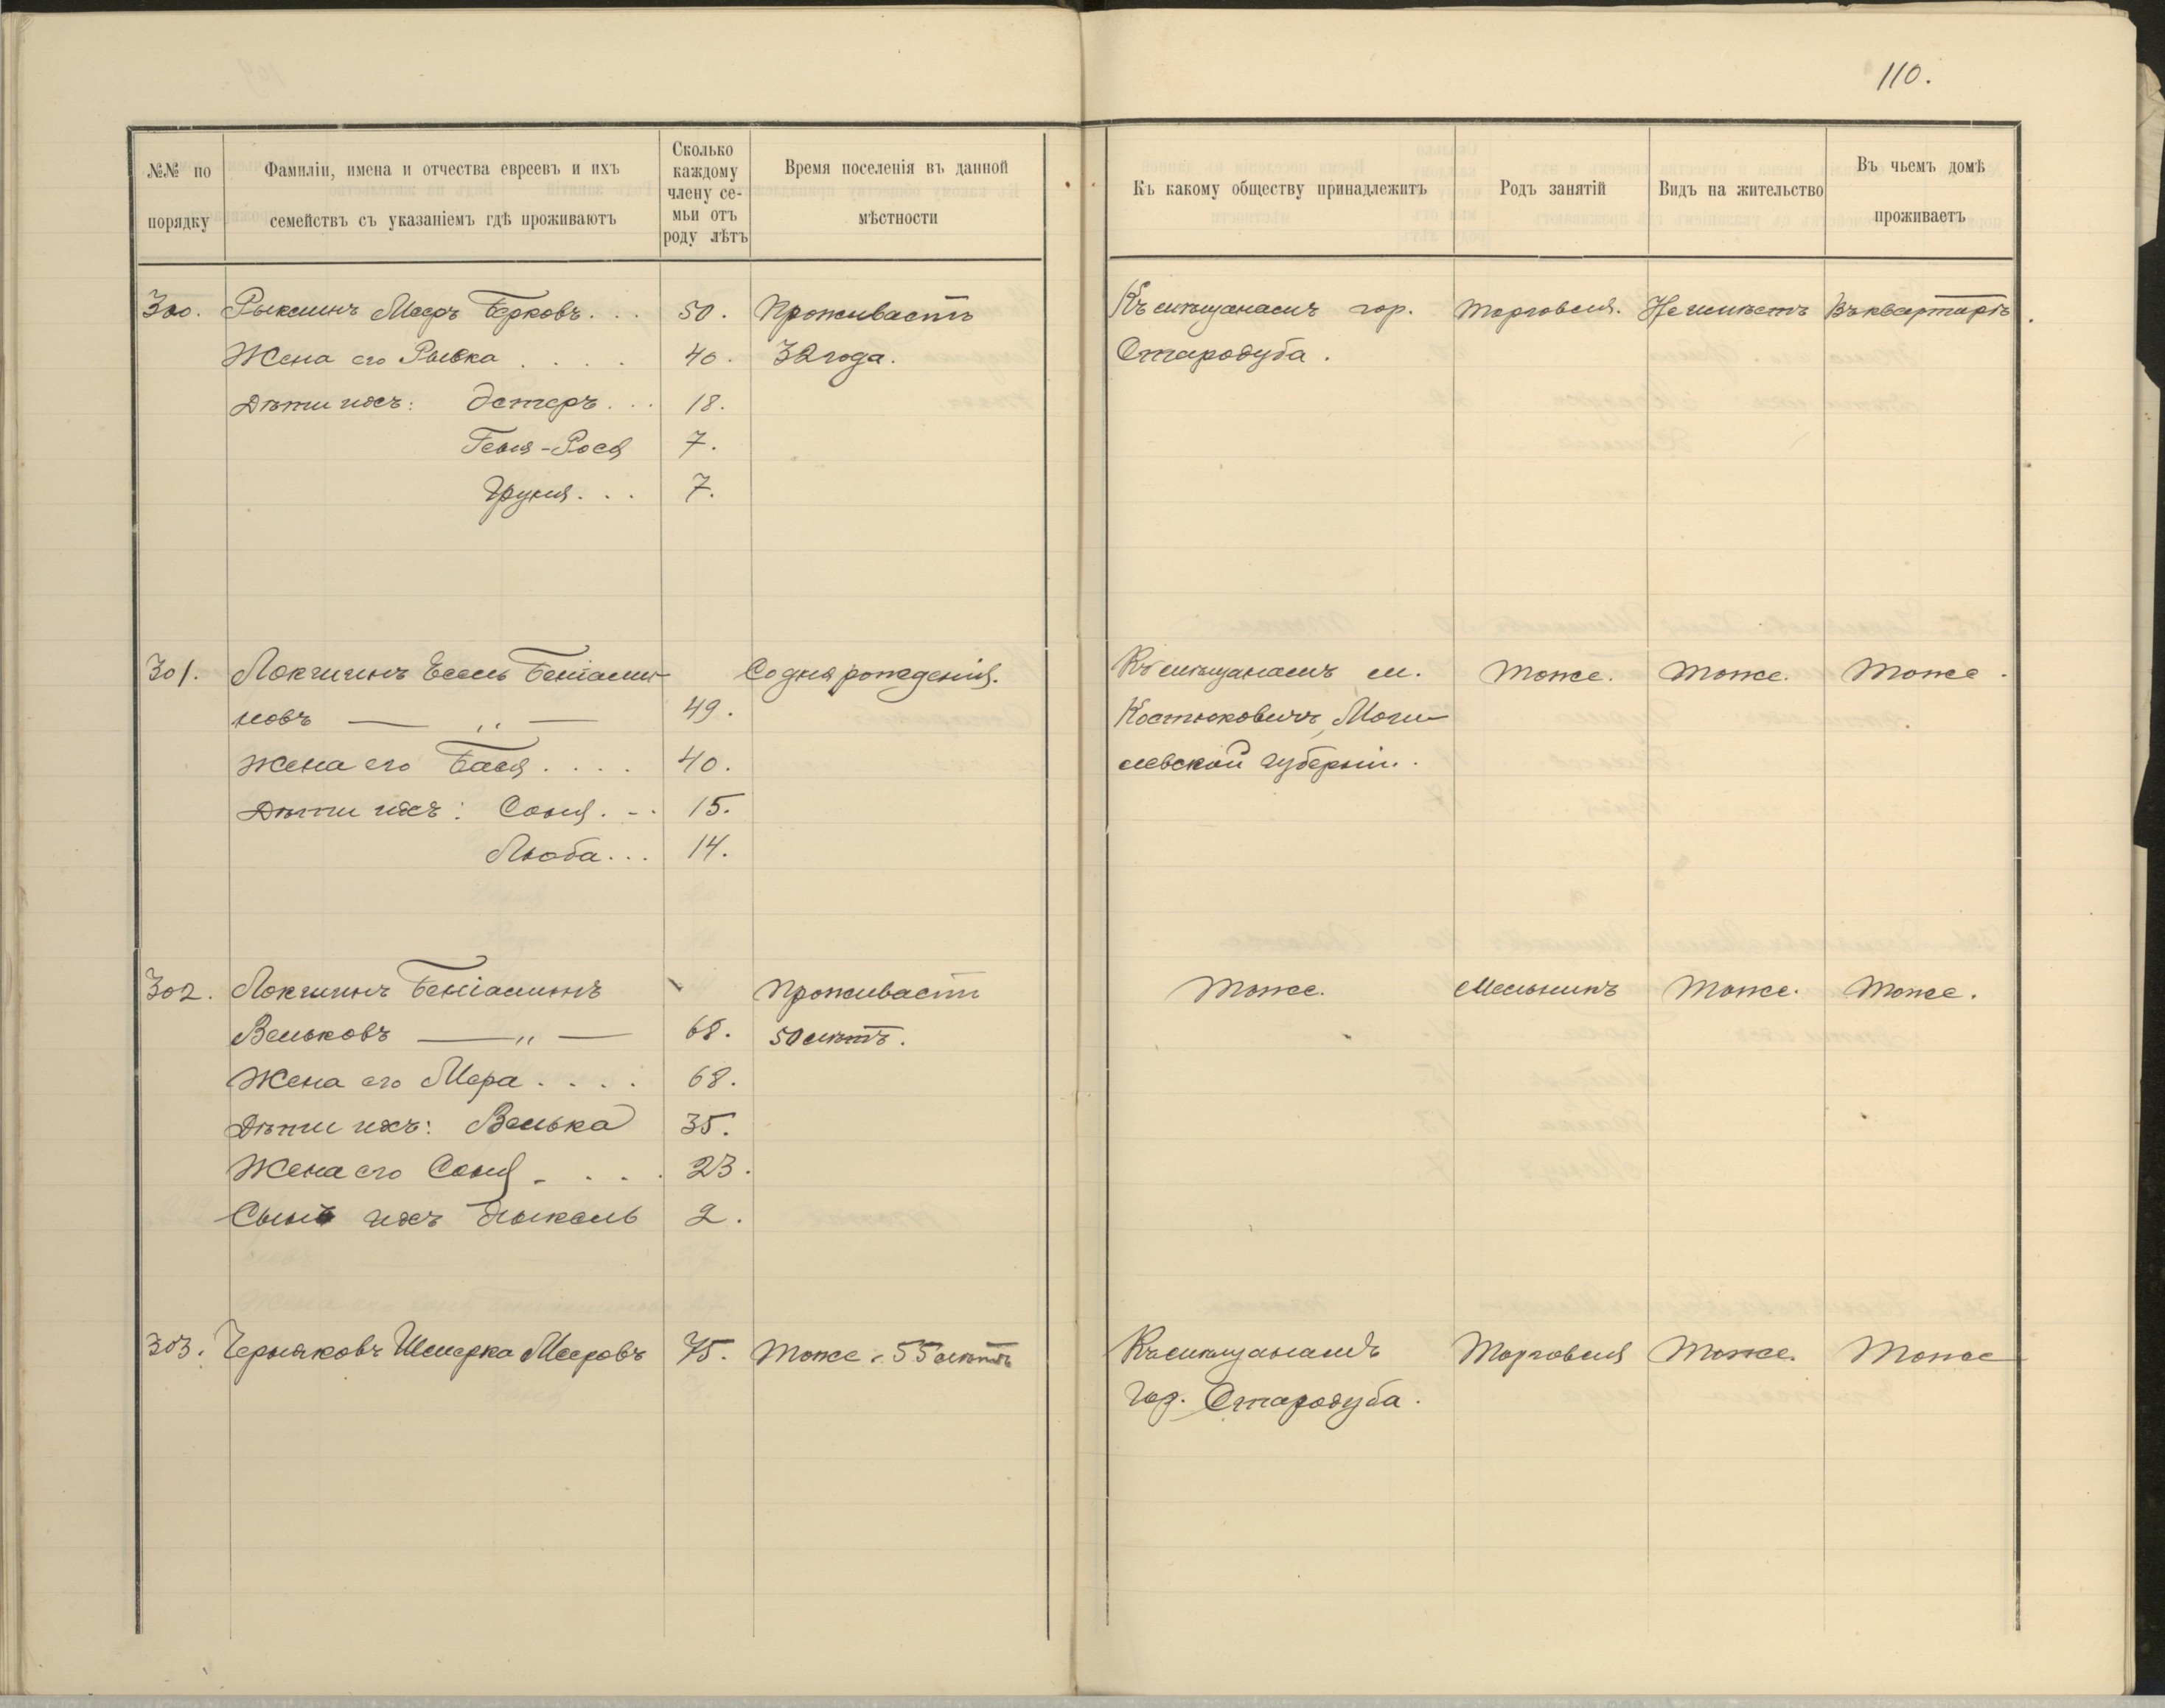 110.
№№ по порядку
Фамиліи, имена и отчества евреевъ и ихъ семействъ съ указаніемъ гдѣ проживаютъ
Сколько каждому члену семьи отъ роду лѣтъ
Время поселенія въ данной мѣстности
Къ какому обществу принадлежитъ
Родъ занятій
Видъ на жительство
Въ чьемъ домѣ проживаетъ
300. Рыкминъ Мееръ Берковъ. . . 50. Проживаетъ Къ мѣщанамъ гор. Торговля. Не имѣетъ Въ квартирѣ.
Жена его Рывка . . . . 40. 32 года. Стародуба.
Дѣти ихъ: Эстеръ. . . 18.
Геня-Рося 7.
Груня. . . 7.
301. Локшинъ Есель Беніами- Со дня рожденія. Къ мѣщанамъ м. Тоже. Тоже. Тоже.
новъ — „ — 49. Костюковичъ, Моги-
Жена его Бася. . . . 40. левской губерніи.
Дѣти ихъ: Соня. - . 15.
Люба. . . 14.
302. Локшинъ Беніаминъ Проживаетъ Тоже. Мельникъ Тоже. Тоже.
Вельковъ — „ — 68. 50 лѣтъ.
Жена его Мера. . . . 68.
Дѣти ихъ: Велька 35.
Жена его Соня - . . . 23.
Сынъ ихъ 2.
303. Черняковъ Шмерка Мееровъ 75. Тоже. 55 лѣтъ Къ мѣщанамъ Торговля Тоже. Тоже
гор. Стародуба.